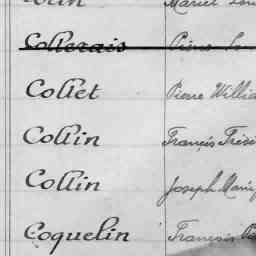 Collerais Pierre
Collet Pierre Willia
Collin François
Collin Joseph Marie
Coquelin François